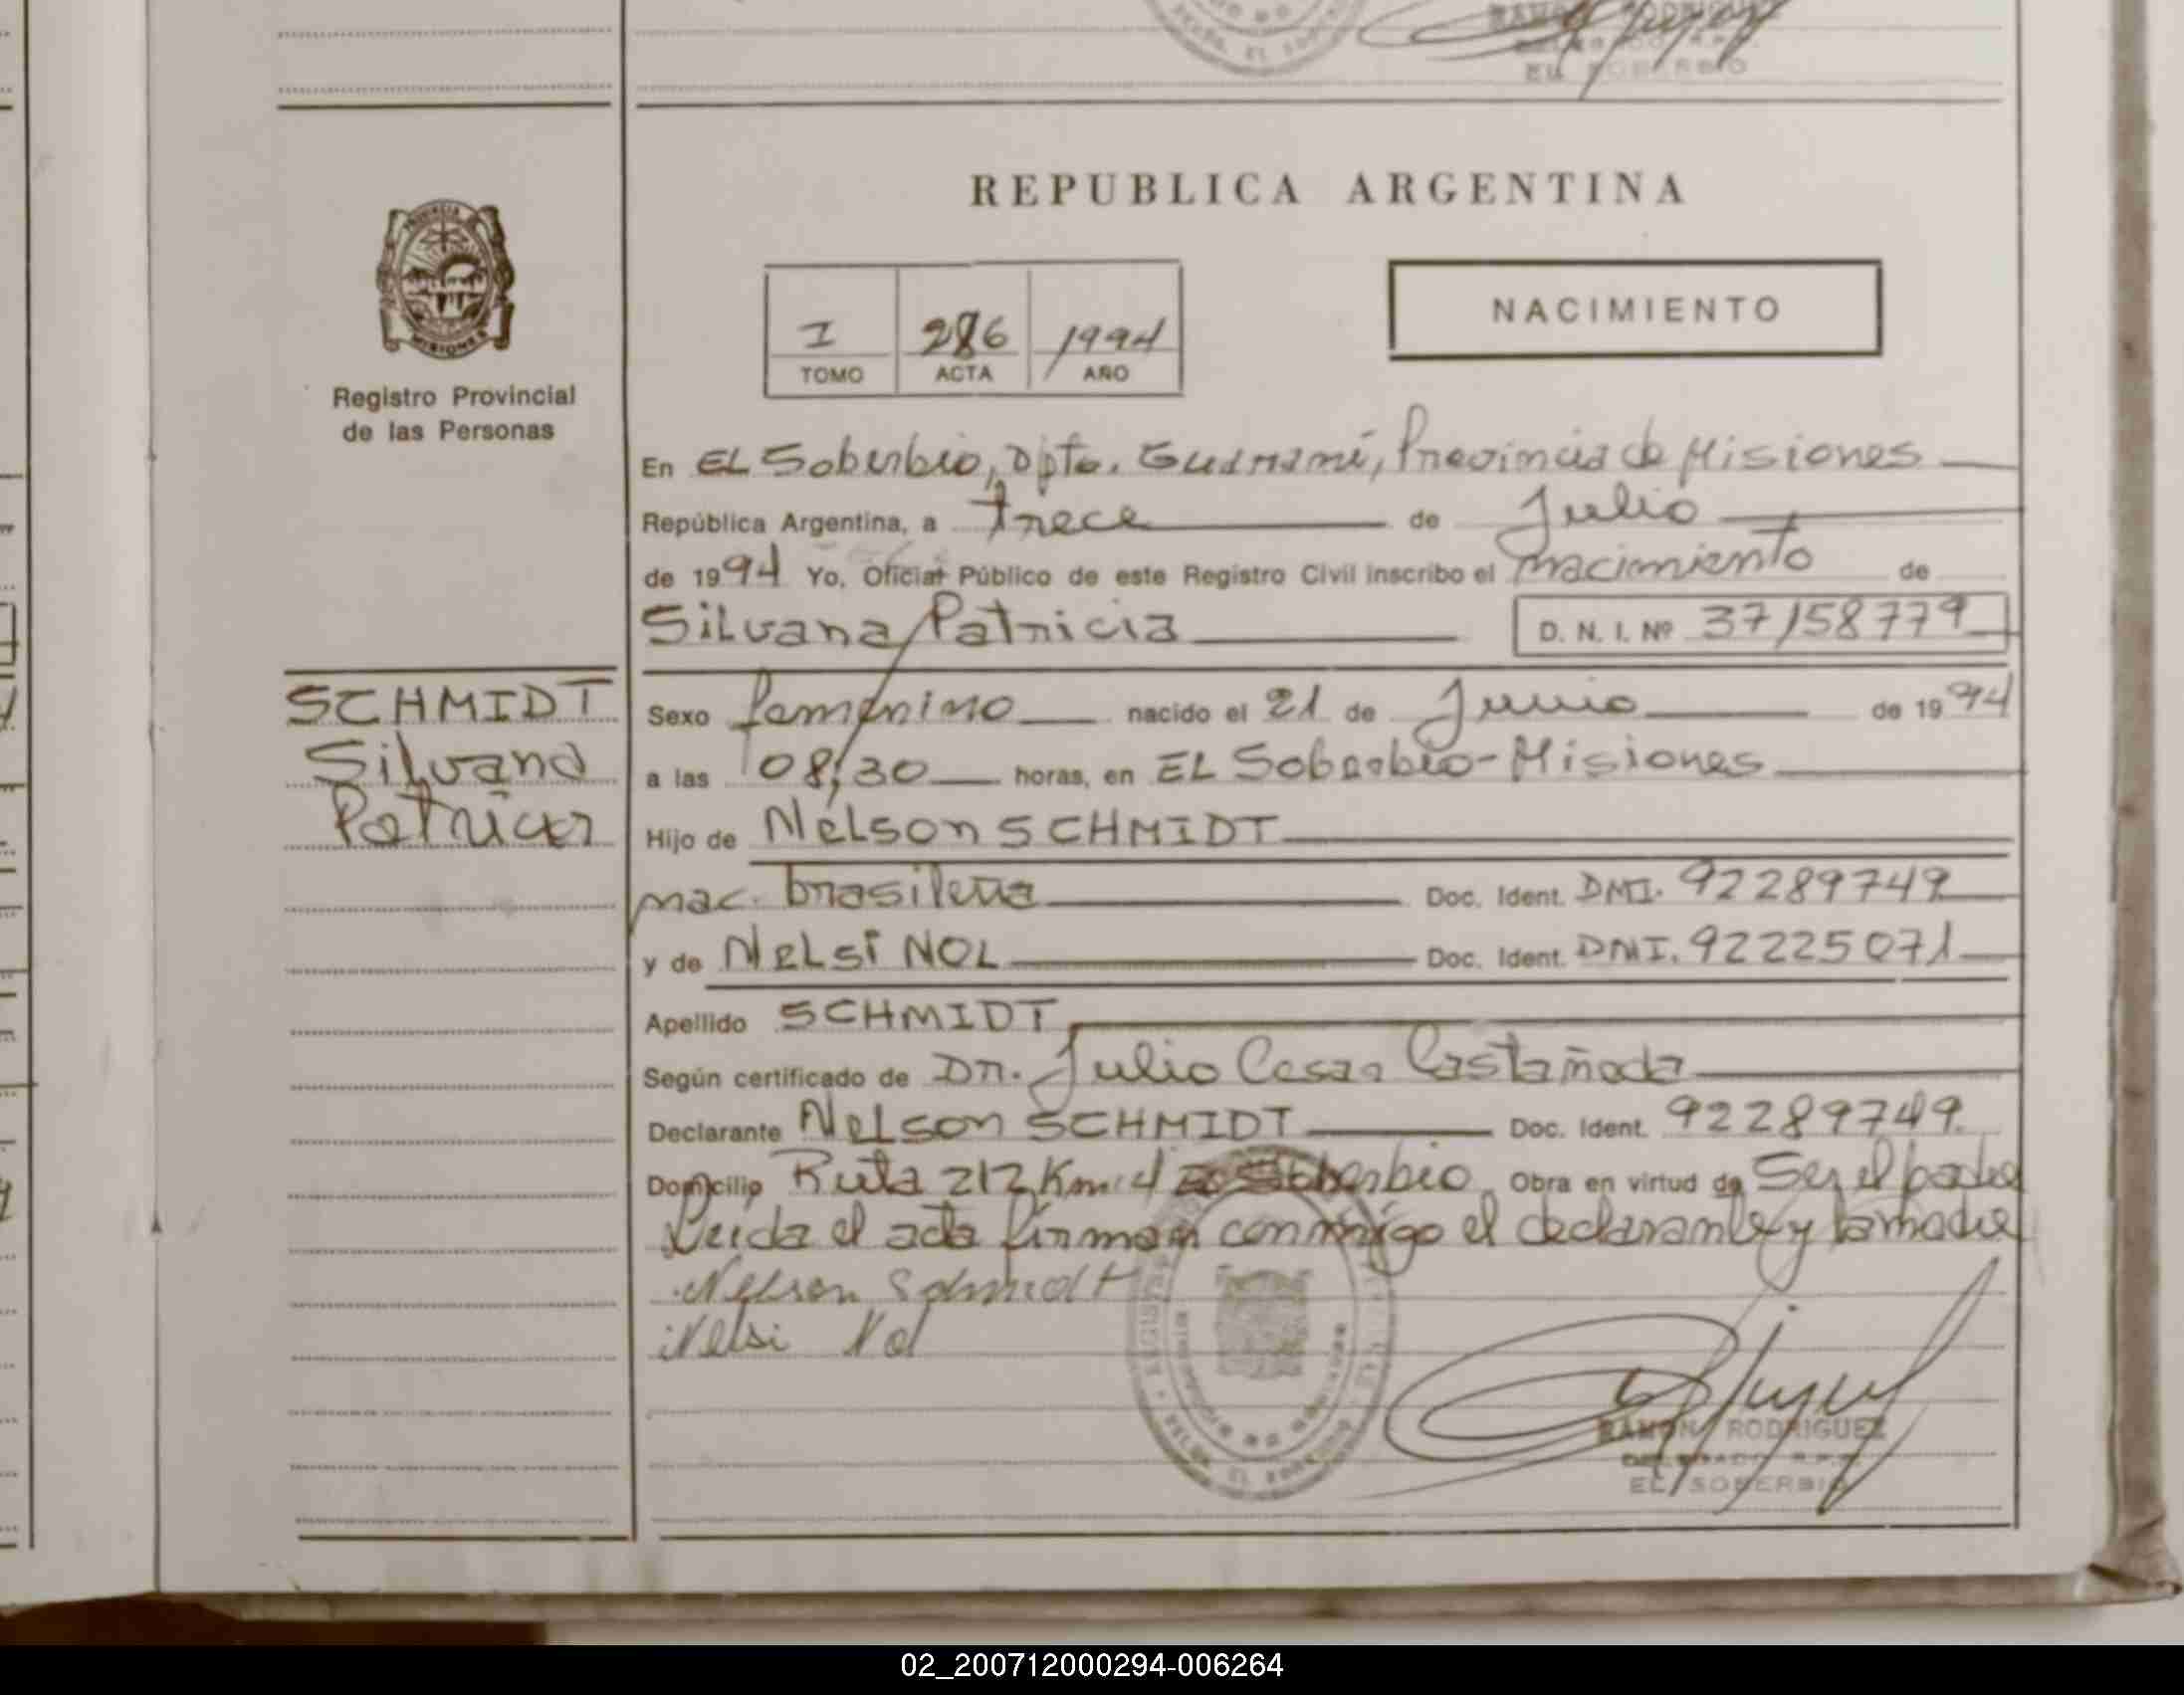 RAMON RODRIGUEZ
EL SOBERBIO
REPUBLICA ARGENTINA
MISIONES
Registro Provincial
de las Personas
I 286 1994
TOMO ACTA AÑO
NACIMIENTO
En EL Soberbio, Dpto. Guaraní, Provincia de Misiones
República Argentina, a trece de Julio
de 1994 Yo, Oficial Público de este Registro Civil inscribo el nacimiento de
Silvana Patricia D. N. I. Nº 37158779
SCHMIDT
Silvana
Patricia
Sexo femenino nacido el 21 de Junio de 1994
a las 08,30 horas, en EL Soberbio-Misiones
Hijo de Nelson SCHMIDT
nac. brasileña Doc. Ident. DNI. 92289749
y de Nelsi NOL Doc. Ident. DNI. 92225071
Apellido SCHMIDT
Según certificado de Dr. Julio Cesar Castañeda
Declarante Nelson SCHMIDT Doc. Ident. 92289749.
Domicilio Ruta 212 Km. 4 Soberbio Obra en virtud de Ser el padre
Leida el acta firman conmigo el declarante y la madre
Nelson Schmidt
Nelsi Nol
RAMON RODRIGUEZ
DELEGADO R.P.P.
EL SOBERBIO
02_200712000294-006264